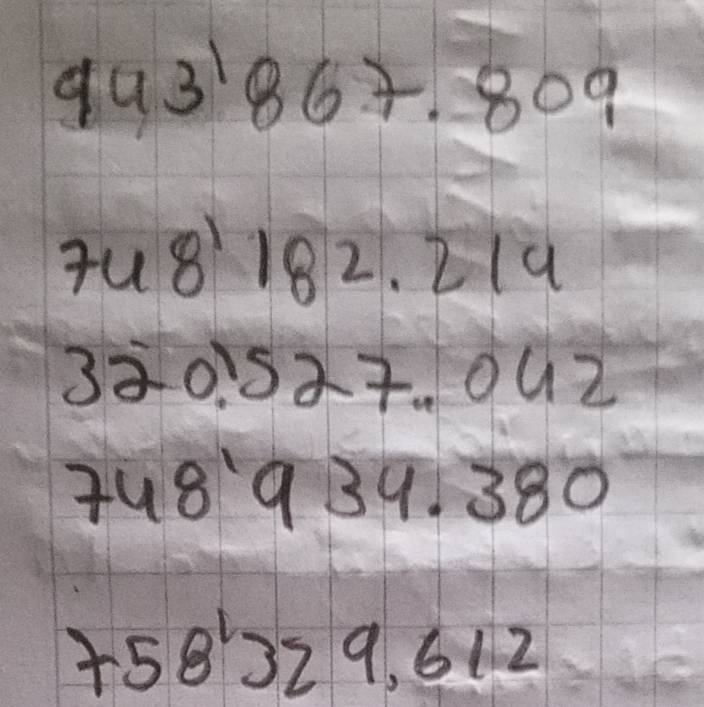 943'867.809
748'182.214
320'527.042
748'934.380
758'329.612